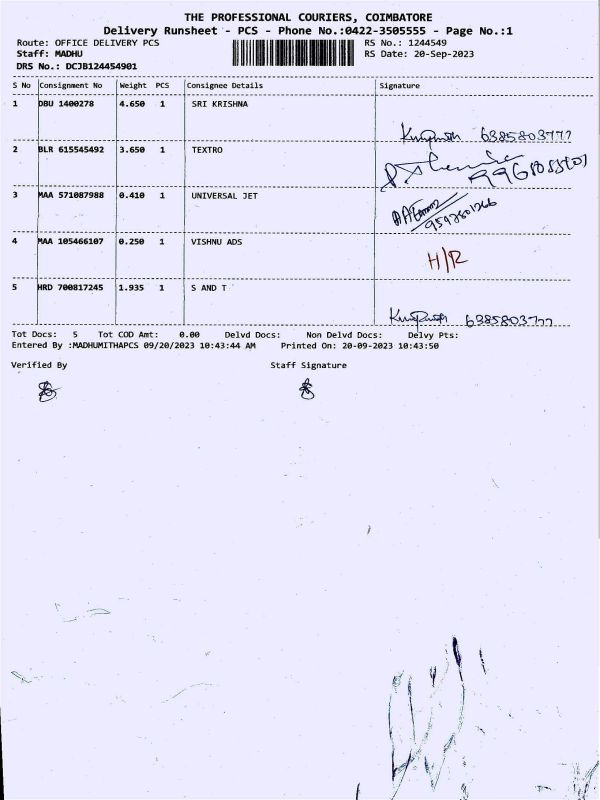 THE PROFESSIONAL COURIERS, COIMBATORE
Delivery Runsheet - PCS - Phone No.:0422-3505555 - Page No.:1
Route: OFFICE DELIVERY PCS RS No.: 1244549
Staff: MADHU RS Date: 20-Sep-2023
DRS No.: DCJB124454901
S No Consignment No Weight PCS Consignee Details Signature
1 DBU 1400278 4.650 1 SRI KRISHNA
6385803777
2 BLR 615545492 3.650 1 TEXTRO
3 MAA 571087988 0.410 1 UNIVERSAL JET
4 MAA 105466107 0.250 1 VISHNU ADS
H/R
5 HRD 700817245 1.935 1 S AND T
6385803777
Tot Docs: 5 Tot COD Amt: 0.00 Delvd Docs: Non Delvd Docs: Delvy Pts:
Entered By :MADHUMITHAPCS 09/20/2023 10:43:44 AM Printed On: 20-09-2023 10:43:50
Verified By Staff Signature